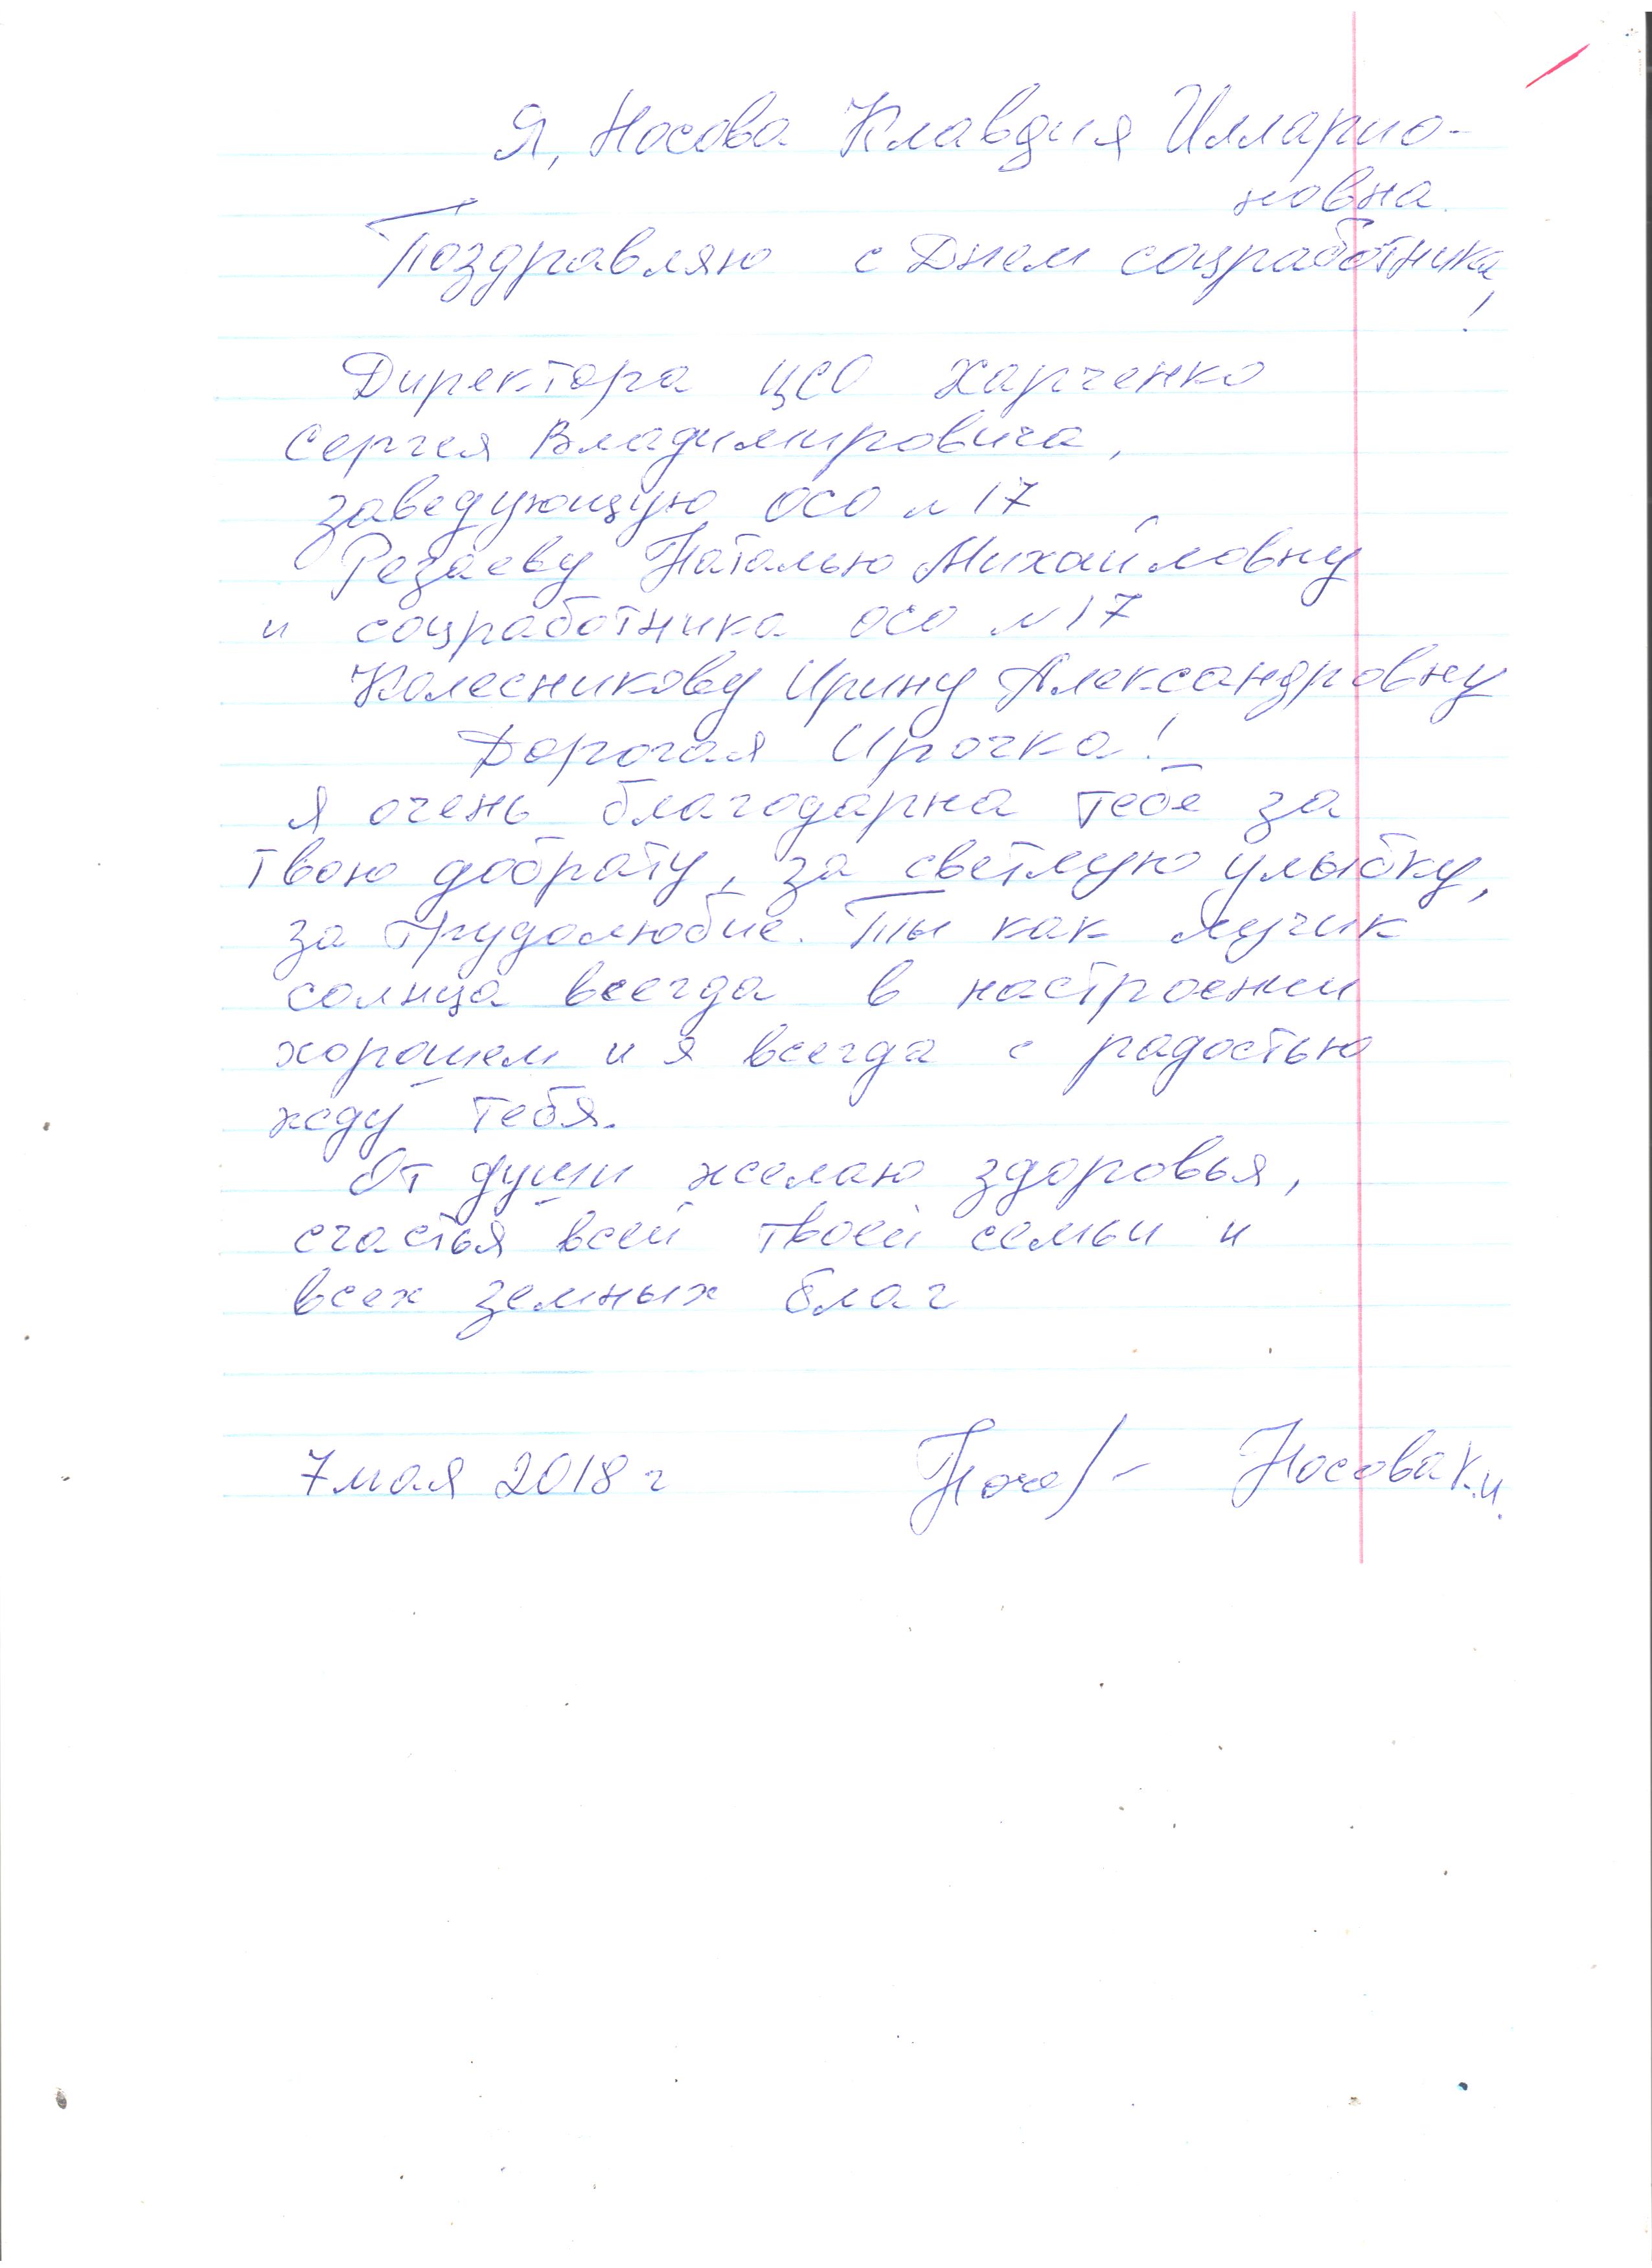 Я, Носова Клавдия Илларио-
новна.
Поздравляю с Днем соцработника
!
Директора ЦСО Харченко
Сергея Владимировича,
заведующую ОСО N 17
Резаеву Наталью Михайловну
и соцработника ОСО N 17
Колесникову Ирину Александровну
Дорогая Ирочка!
Я очень благодарна тебе за
твою доброту, за светлую улыбку,
за трудолюбие. Ты как лучик
солнца всегда в настроении
хорошем и я всегда с радостью
жду тебя.
От души желаю здоровья,
счастья всей твоей семьи и
всех земных благ
7 мая 2018 г Носова К.И.